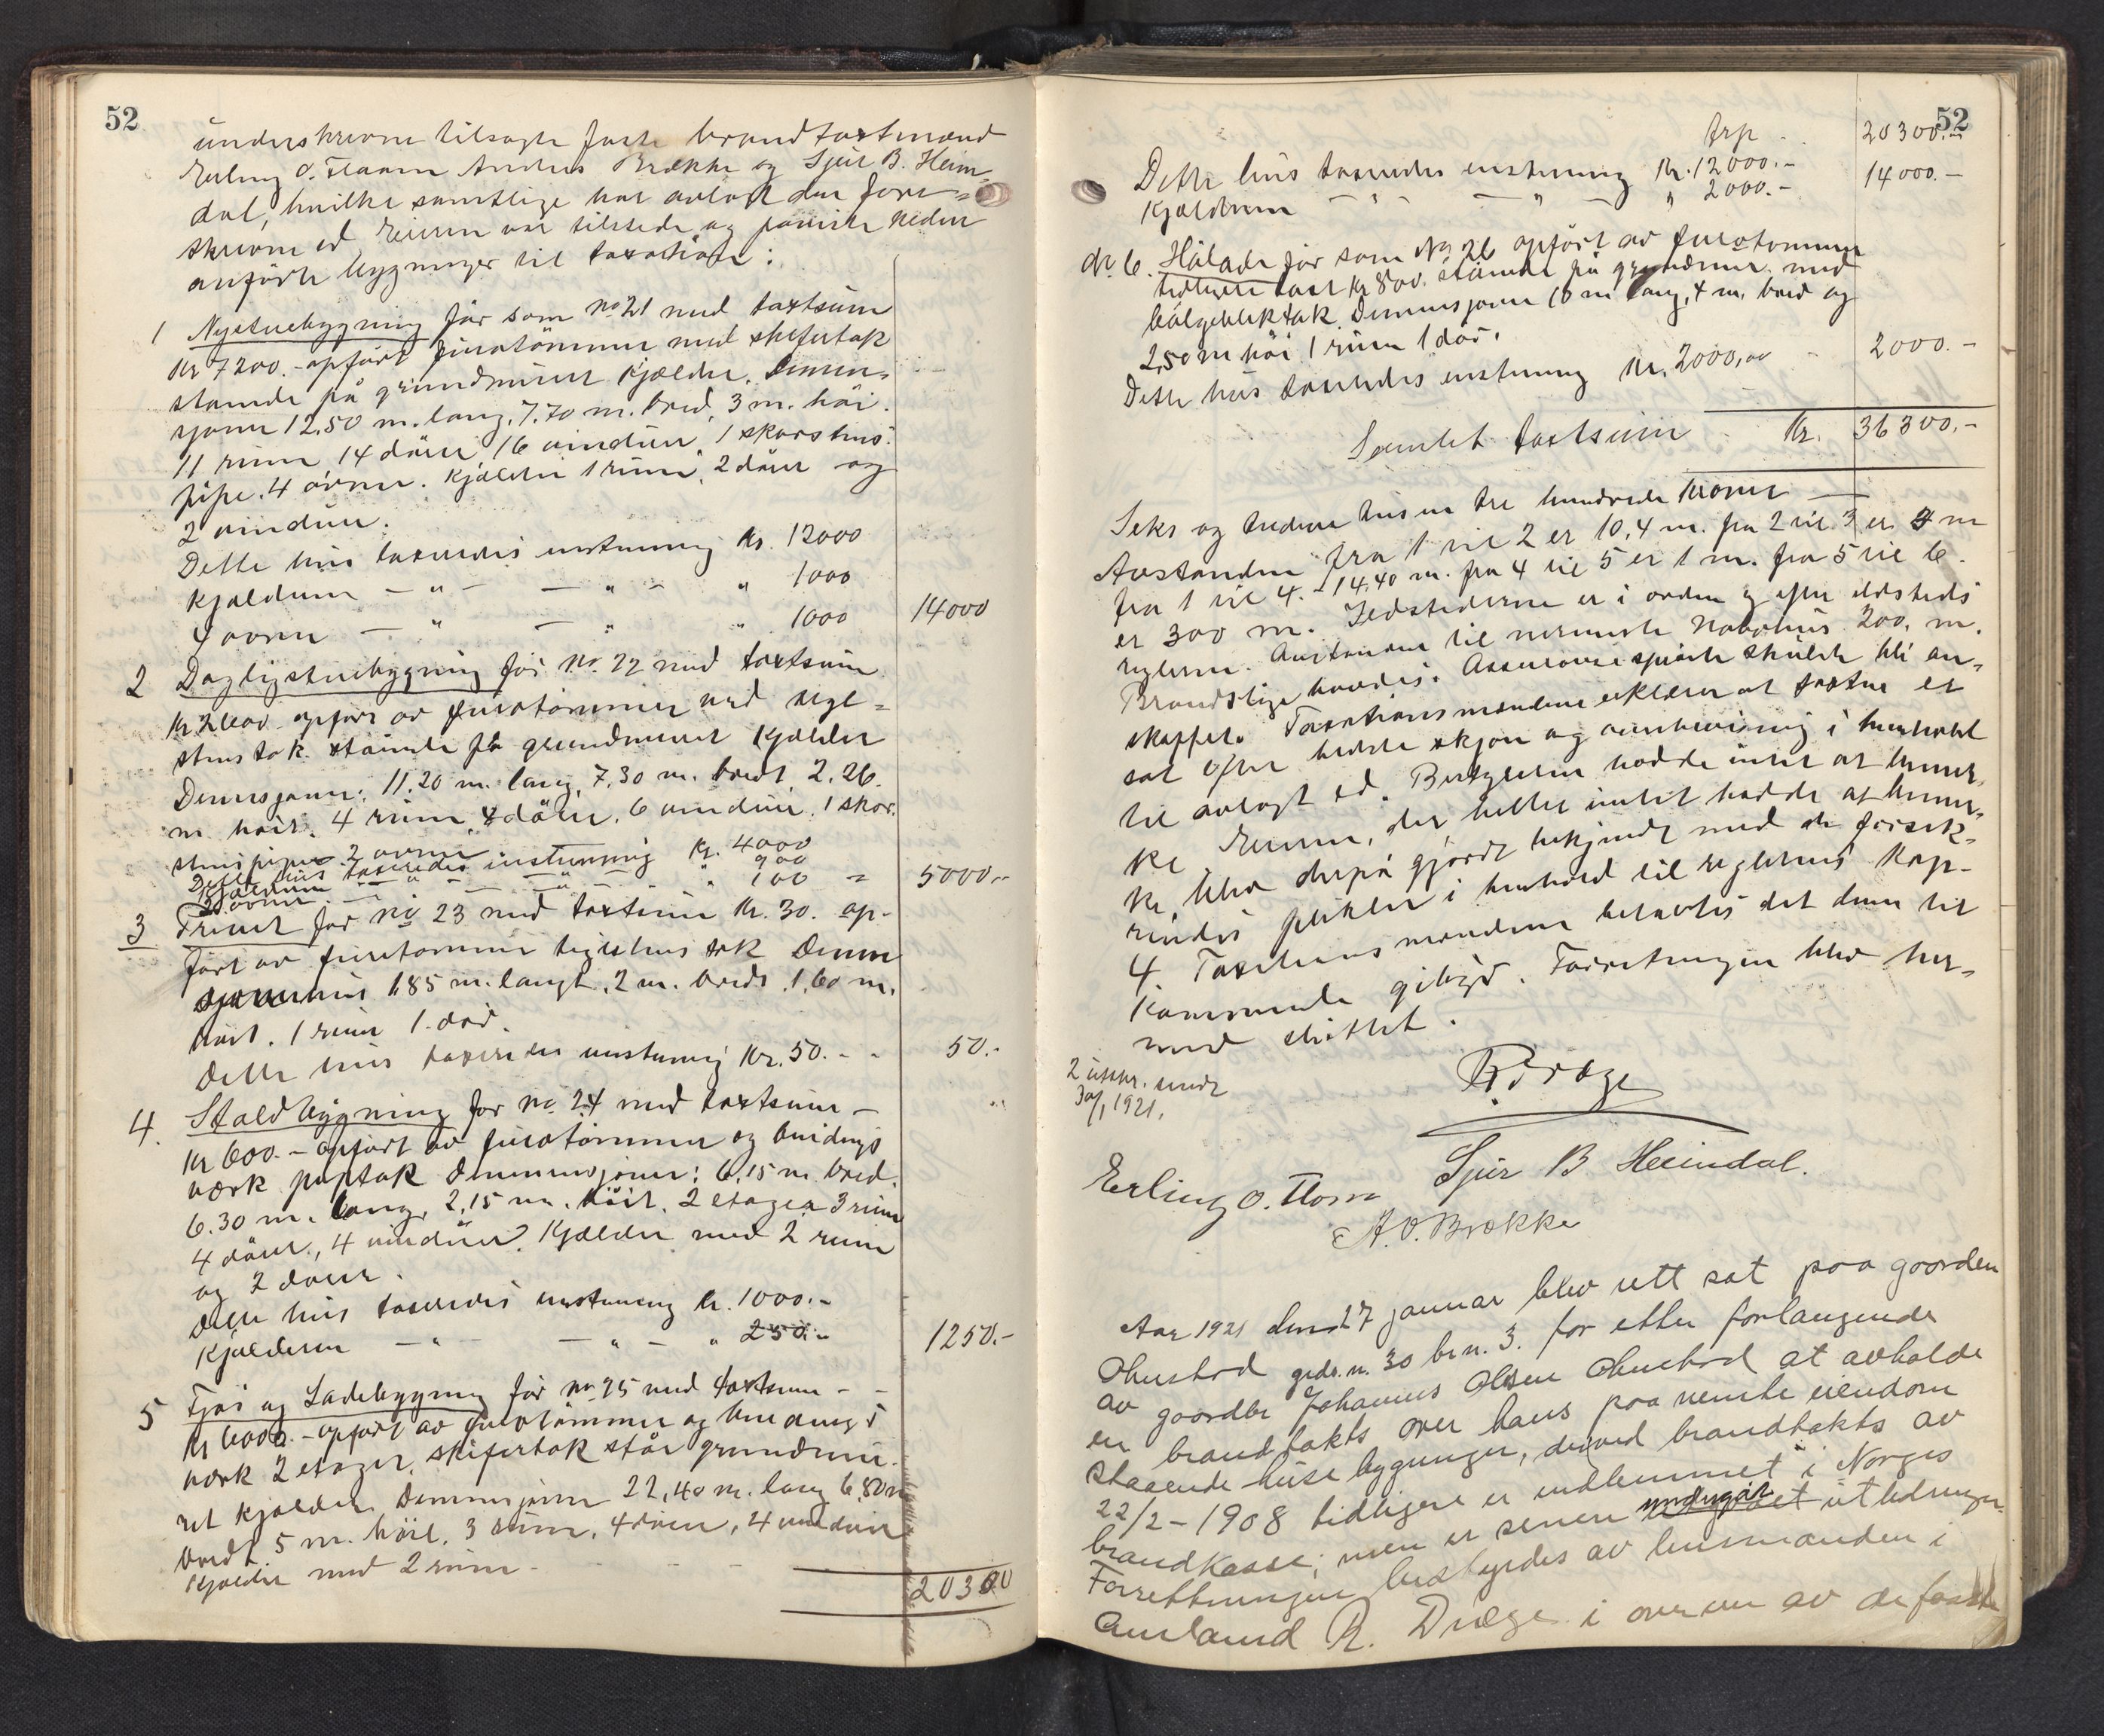 52
underskrevne tilsagte faste brandtaxtmænd
Erling O. Flaam Anders Brække og Sjur B. Heim-
dal, hvilke samtlige har avlagt den fore-
skrevne ed. Eieren var tilstede og påviste neden
anførte bygninger til taxation:
1 Nystuebygning før som no 21 med taxtsum
Kr 7200.- opført furutömmer med skifertak
stående på grundmuret kjælder. Dimen-
sjoner 12,50 m. lang, 7,70 m. bred, 3 m. høi.
11 rum, 14 dører, 16 vinduer, 1 skorstens-
pipe. 4 ovner. Kjælder 1 rum, 2 dører og
2 vinduer.
Dette hus taxeredes enstemmig Kr. 12000
Kjælderen — " — — " — " 1000
4 ovner — " — " " 1000 14000
2 Dagligstuebygning før No. 22 med taxtsum
Kr 2600 opført av furutømmer med tegl-
stens tak. stående på grundmuret kjælder
Dimensjoner: 11.20 m. lang, 7.30 m. bredt 2.26
m høit. 4 rum, 8 dører, 6 vinduer, 1 skor-
stenspipe 2 ovner.
Dette hus taxeredes enstemmig Kr. 4000
Kjælderen — " — " — " 900
2 ovner — 100 = 5000.-
3 Træet før no 23 med taxtsum Kr. 30. op-
ført av furutømmer teglstens tak Dimen
sjoner 1,85 m. langt, 2 m. bredt. 1,60 m.
høit. 1 rum 1. dør.
Dette hus taxeredes enstemmig Kr. 50. - - 50.-
4. Staldbygning før no 24 med taxtsum -
Kr 600.- opført av furutømmer og bindings
værk paptak Dimensjoner: 6,15 m bred.
6.30 m. lang, 2,15 m. höit. 2 etager 3 rum
4 dører, 4 vinduer. Kjælder med 2 rum
og 2 dører.
Dette hus taxeredes enstemmig Kr. 1000.-
Kjælderen — " — — " — " 250.- 1250.-
5 Fjøs og Ladebygning før no 25 med taxtsum - -
Kr 6000.- opført av furutömmer og bindings
værk 2 etager, skifertak står grundmu-
ret kjælder Dimensjoner 22,40 m. lang 6,80 m
bredt. 5 m. høit, 3 rum, 4 dører, 4 vinduer
kjælder med 2 rum -
20300
52
Trp - 20300.-
Dette hus taxeredes enstemmig Kr. 12000.-
Kjælderen — " — — " — " 2000.- 14000.-
No 6. Hølade før som No 26 opført av furutømmer
tidligere taxt Kr 800. stående på grundmur med
bølgebliktak. Dimensjoner 10 m lang, 4 m. bred og
2,50 m høi 1 rum 1 dør.
Dette hus taxeredes enstemmig Kr. 2000,00 - 2000.-
Samlet taxtsum - Kr. 36300.-
Seks og tredive tusen tre hundrede kroner —
Avstanden fra 1 til 2 er 10,4 m. fra 2 til 3 er 9 m
fra 1 til 4. - 14.40 m. fra 4 til 5 er 1 m. fra 5 til 6.
er 300 m. Ildstederne er i orden og efter ildsteds
reglerne. Avstanden til nærmeste nabohus 200. m.
Brandstige havdes. Assuransesprøite skulde bli an-
skaffet. Taxationsmændene erklærer at taxten er
sat efter bedste skjøn og overbevisning i henhold
til avlagt ed. Bestyreren hadde intet at bemer-
ke. Eieren, der heller intet hadde at bemer-
ke, blev derpå gjordt bekjendt med de forsik-
redes plikter i henhold til reglernes kap-
4. Taxationsmændene betaltes det dem til
kommende gebyr. Forretningen blev her-
med sluttet.
2 utskr. sendt
30/1 1921.
R. Dræge
Sjur B Heimdal.
Erling O. Flam
A. O. Brække
Aar 1921 den 27 januar blev rett sat paa gaarden
Ohnstad grds.n. 30 br.n. 3. for etter forlangende
av gaardbr Johannes Olsen Ohnstad at avholde
en brandtakts over hans paa nemte eiendom
staaende husebygninger, der ved brandtakts av
22/2 - 1908 tidligere er indlemmet i Norges
brandkasse; men er senere undergåt utbedringer
Forrettningen bestyrdes av lensmanden i
Aurland R. Dræge i overvær av de faste